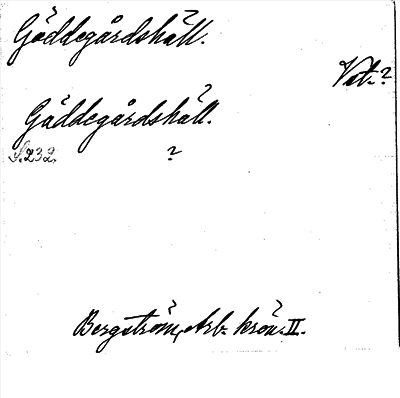 Gäddegårdshäll.
Vet. ?
Gäddegårdshäll.
S. 232. ?
Bergström, Arb. krön. II.